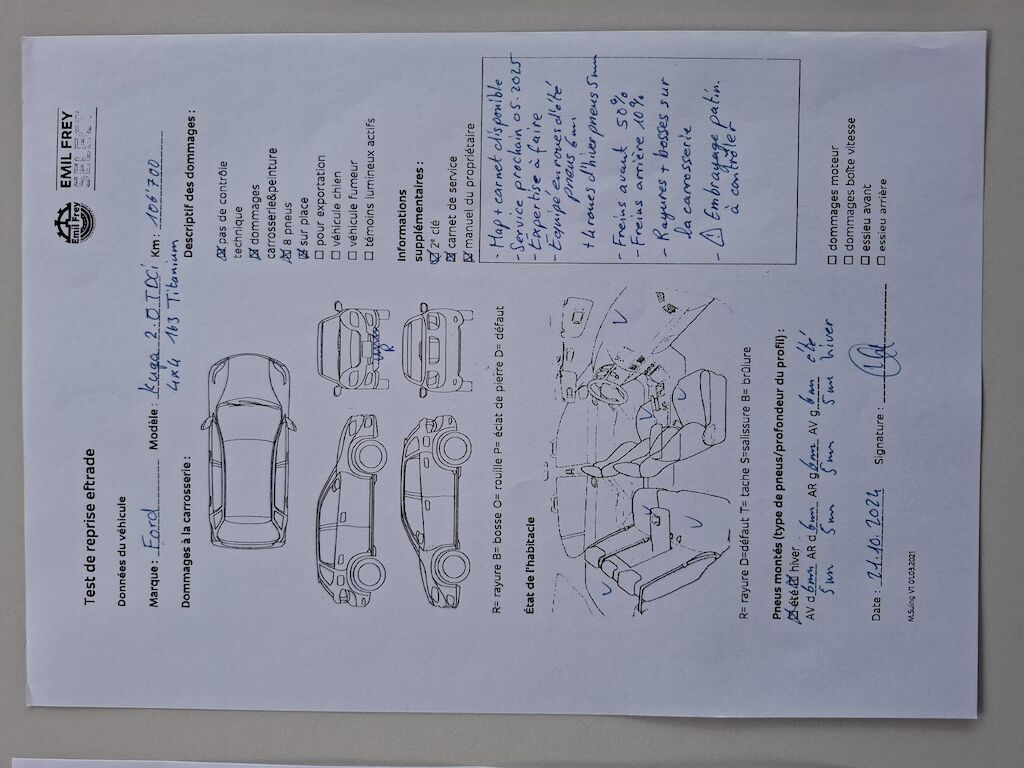 EMIL FREY
Emil Frey
Test de reprise eftrade
Données du véhicule
Marque : Ford Modèle : Kuga 2.0 TDCi Km : 106'700
4x4 163 Titanium
Dommages à la carrosserie :
Descriptif des dommages :
☑ pas de contrôle
technique
☑ dommages
carrosserie&peinture
☑ 8 pneus
☑ sur place
☐ pour exportation
☐ véhicule chien
☐ véhicule fumeur
☐ témoins lumineux actifs
R
R= rayure B= bosse O= rouille P= éclat de pierre D= défaut
Informations
supplémentaires :
☑ 2e clé
☑ carnet de service
☑ manuel du propriétaire
- Map + carnet disponible
- Service prochain 05.2025
- Expertise à faire
- Equipé en roues d'été
pneus 6mm
+ 4 roues d'hiver pneus 5mm
- Freins avant 50%
- Freins arrière 10%
- Rayures + bosses sur
la carrosserie
- ⚠ Embrayage patin.
à contrôler
État de l'habitacle
R= rayure D=défaut T= tache S=salissure B= brûlure
Pneus montés (type de pneus/profondeur du profil) :
☑ été ☑ hiver
AV d 6mm AR d 6mm AR g 6mm AV g 6m été
5mm 5mm 5mm 5mm hiver
☐ dommages moteur
☐ dommages boîte vitesse
☐ essieu avant
☐ essieu arrière
Date : 21.10.2024 Signature :
M.Suing V1 01.03.2021